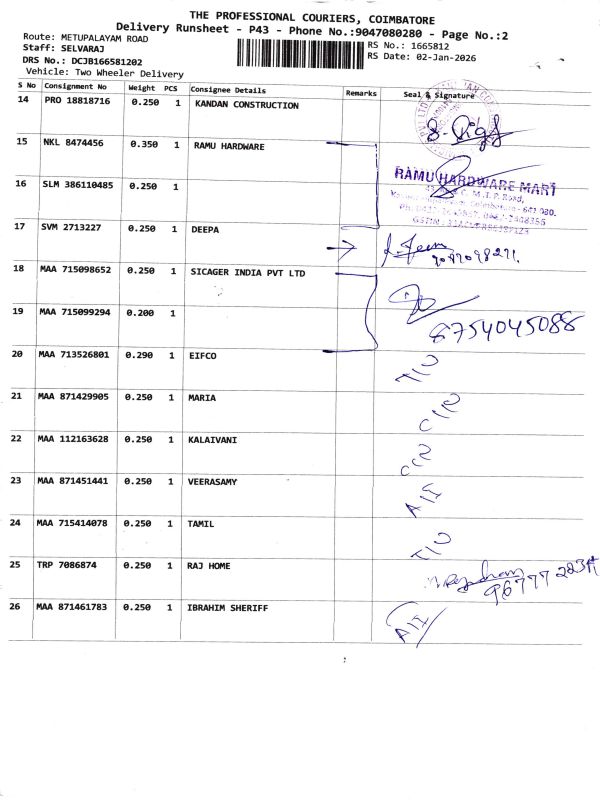 THE PROFESSIONAL COURIERS, COIMBATORE
Delivery Runsheet - P43 - Phone No.:9047080280 - Page No.:2
Route: METUPALAYAM ROAD
RS No.: 1665812
Staff: SELVARAJ
RS Date: 02-Jan-2026
DRS No.: DCJB166581202
Vehicle: Two Wheeler Delivery
S No Consignment No Weight PCS Consignee Details Remarks Seal & Signature
14 PRO 18818716 0.250 1 KANDAN CONSTRUCTION
15 NKL 8474456 0.350 1 RAMU HARDWARE
RAMU HARDWARE MART
16 SLM 386110485 0.250 1
17 SVM 2713227 0.250 1 DEEPA
18 MAA 715098652 0.250 1 SICAGER INDIA PVT LTD
19 MAA 715099294 0.200 1
8754045088
20 MAA 713526801 0.290 1 EIFCO
21 MAA 871429905 0.250 1 MARIA
22 MAA 112163628 0.250 1 KALAIVANI
23 MAA 871451441 0.250 1 VEERASAMY
24 MAA 715414078 0.250 1 TAMIL
25 TRP 7086874 0.250 1 RAJ HOME
26 MAA 871461783 0.250 1 IBRAHIM SHERIFF